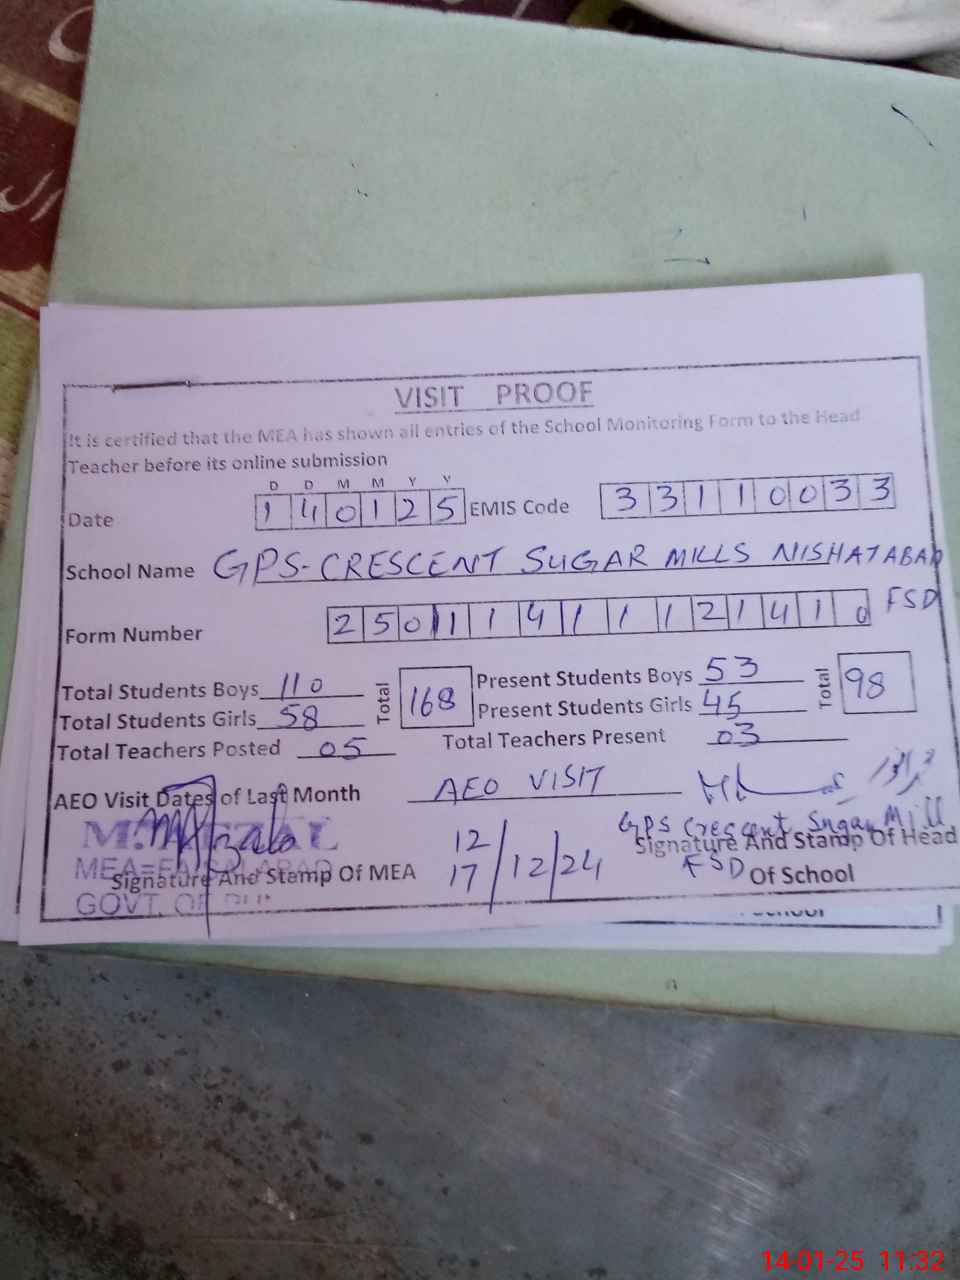 VISIT PROOF
It is certified that the MEA has shown all entries of the School Monitoring Form to the Head
Teacher before its online submission
D D M M Y Y
Date 1 4 0 1 2 5 EMIS Code 3 3 1 1 0 0 3 3
School Name GPS-CRESCENT SUGAR MILLS NISHATABAD
FSD
Form Number 2 5 0 1 1 4 1 1 1 2 1 4 1 0
Total Students Boys 110 Total 168 Present Students Boys 53 Total 98
Total Students Girls 58 Present Students Girls 45
Total Teachers Posted 05 Total Teachers Present 03
AEO Visit Dates of Last Month AEO VISIT
12
17/12/24
GPS Crescent Sugar Mill
FSD
MEA=FAISALABAD
GOVT. OF
Signature And Stamp Of MEA
Signature And Stamp Of Head
Of School
14-01-25 11:32